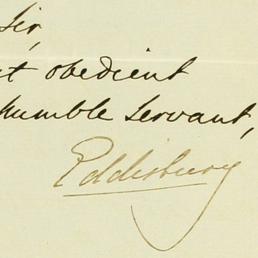 Sir,
t obedient
humble Servant,
Eddisbury